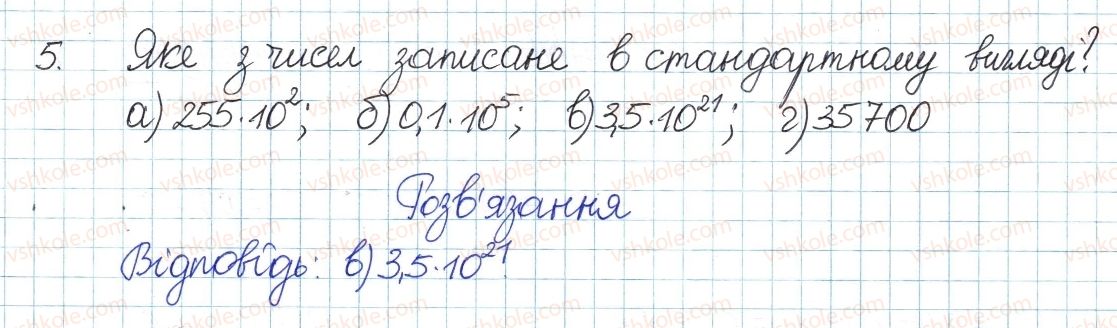 5. Яке з чисел записане в стандартному вигляді?
а) 255·10²; б) 0,1·10⁵; в) 3,5·10²¹; г) 35700
Розв'язання
Відповідь: в) 3,5·10²¹.